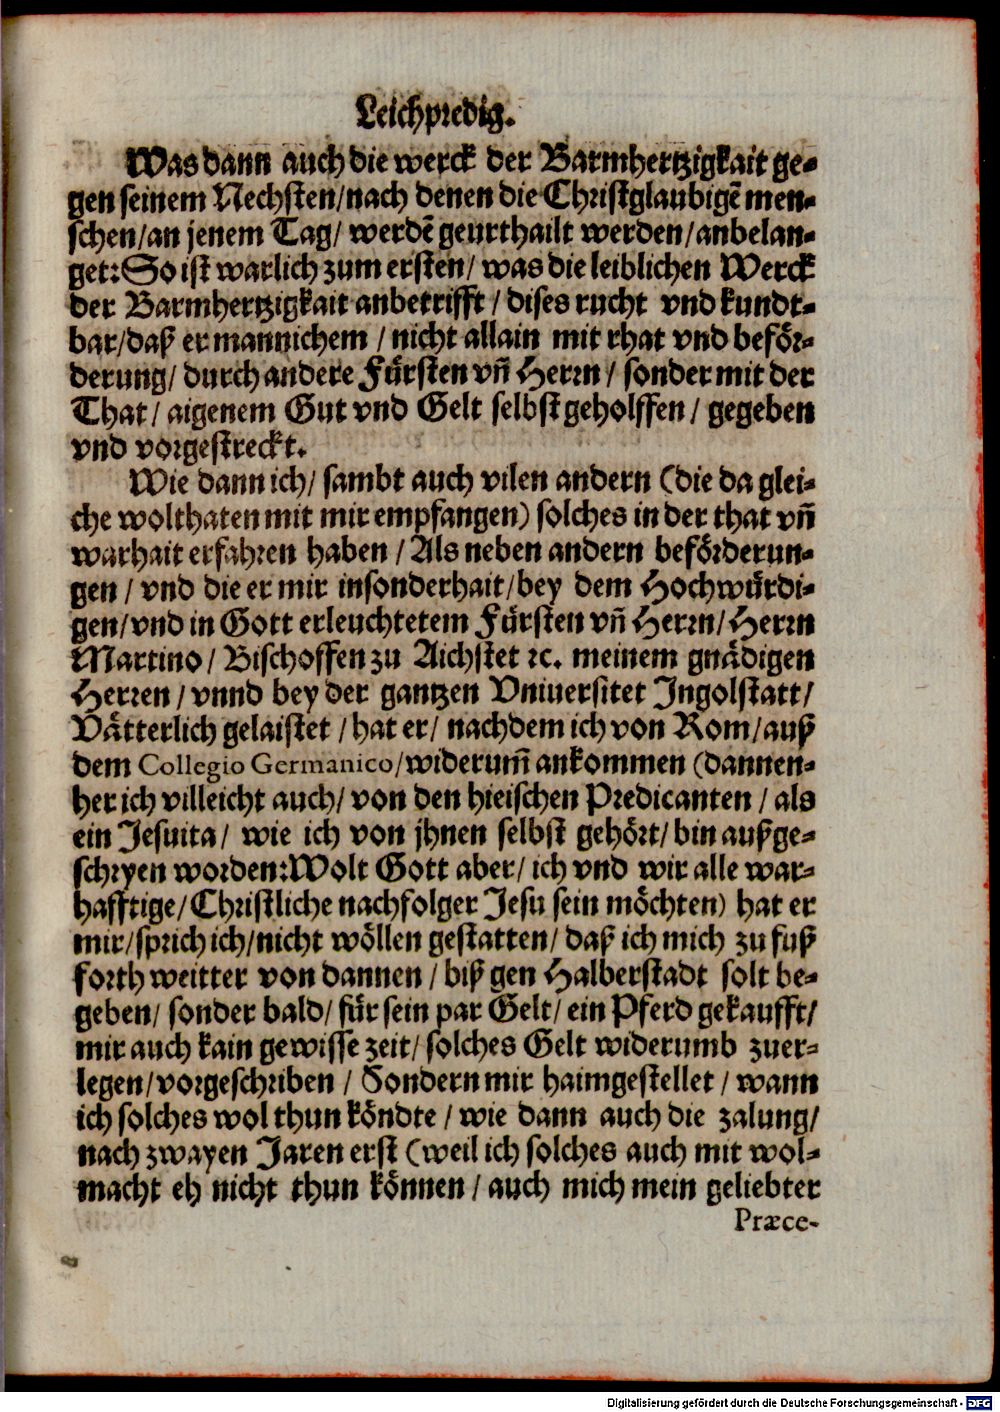 Leichpredig.
Was dann auch die werck der Barmhertzigkait ge-
gen seinem Nechsten/nach denen die Christglaubigẽ men-
schen/an jenem Tag/ werdẽ geurthailt werden/anbelan-
get: So ist warlich zum ersten/ was die leiblichen Werck
der Barmhertzigkait anbetrifft/ dises rucht vnd kundt-
bar/daß er mannichem/ nicht allain mit rhat vnd beför-
derung/ durch andere Fürsten vñ Herrn/ sonder mit der
That/ aigenem Gut vnd Gelt selbst geholffen/ gegeben
vnd vorgestreckt.
Wie dann ich/ sambt auch vilen andern (die da glei-
che wolthaten mit mir empfangen) solches in der that vñ
warhait erfahren haben/ Als neben andern beförderun-
gen/ vnd die er mir insonderhait/bey dem Hochwürdi-
gen/vnd in Gott erleuchtetem Fürsten vñ Herrn/Herrn
Martino/ Bischoffen zu Aichstet ꝛc. meinem gnädigen
Herren/ vnnd bey der gantzen Vniuersitet Jngolstatt/
Vätterlich gelaistet/ hat er/ nachdem ich von Rom/auß
dem Collegio Germanico/widerum̃ ankommen (dannen-
her ich villeicht auch/ von den hieischen Predicanten/ als
ein Jesuita/ wie ich von jhnen selbst gehört/ bin außge-
schryen worden: Wolt Gott aber/ ich vnd wir alle war-
hafftige/Christliche nachfolger Jesu sein möchten) hat er
mir/sprich ich/nicht wöllen gestatten/ daß ich mich zu fuß
forth weitter von dannen/ biß gen Halberstadt solt be-
geben/ sonder bald/ für sein par Gelt/ ein Pferd gekaufft/
mir auch kain gewisse zeit/ solches Gelt widerumb zuer-
legen/vorgeschriben/ Sondern mir haimgestellet/ wann
ich solches wol thun köndte/ wie dann auch die zalung/
nach zwayen Jaren erst (weil ich solches auch mit wol-
macht eh nicht thun können/ auch mich mein geliebter
Præce-
Digitalisierung gefördert durch die Deutsche Forschungsgemeinschaft - DFG